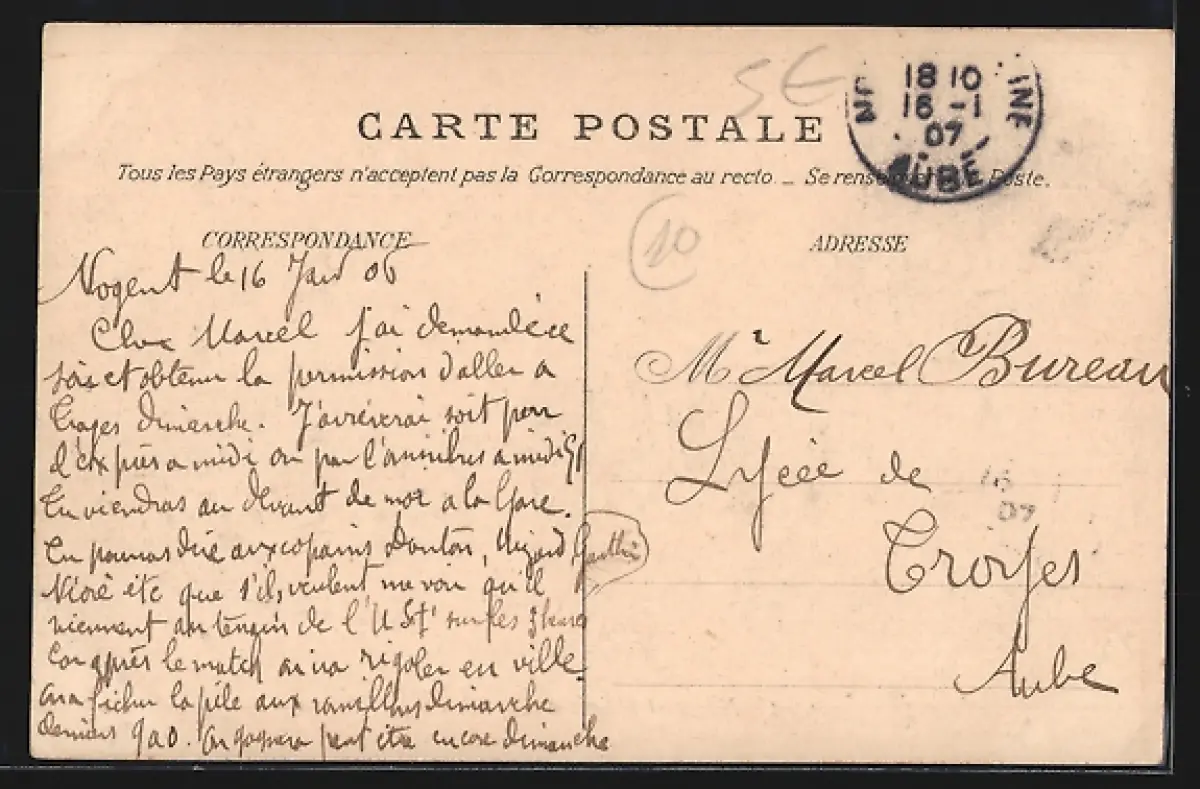 SE
18 10
16 -1
07
INE
AUBE
CARTE POSTALE
Tous les Pays étrangers n'acceptent pas la Correspondance au recto _ Se rens Poste.
CORRESPONDANCE
10
ADRESSE
Nogent le 16 Janv 06
Cher Marcel j'ai demandé ce
soir et obtenu la permission d'aller a
Troyes dimanche. J'arriverai soit par
l'express a midi ou par l'omnibus a midi
Tu viendras au devant de moi a la Gare.
Tu pourras dire aux copains Gauthier
etc que s'ils veulent me voir qu'il
viennent au terrain de l' sur les 3 heures
après le match on ira rigoler en ville
On a fichu la pile aux dimanche
dernier 9 a 0. On gagnera peut être encore dimanche
Mr Marcel Bureau
Lycée de
Troyes
Aube
16
07